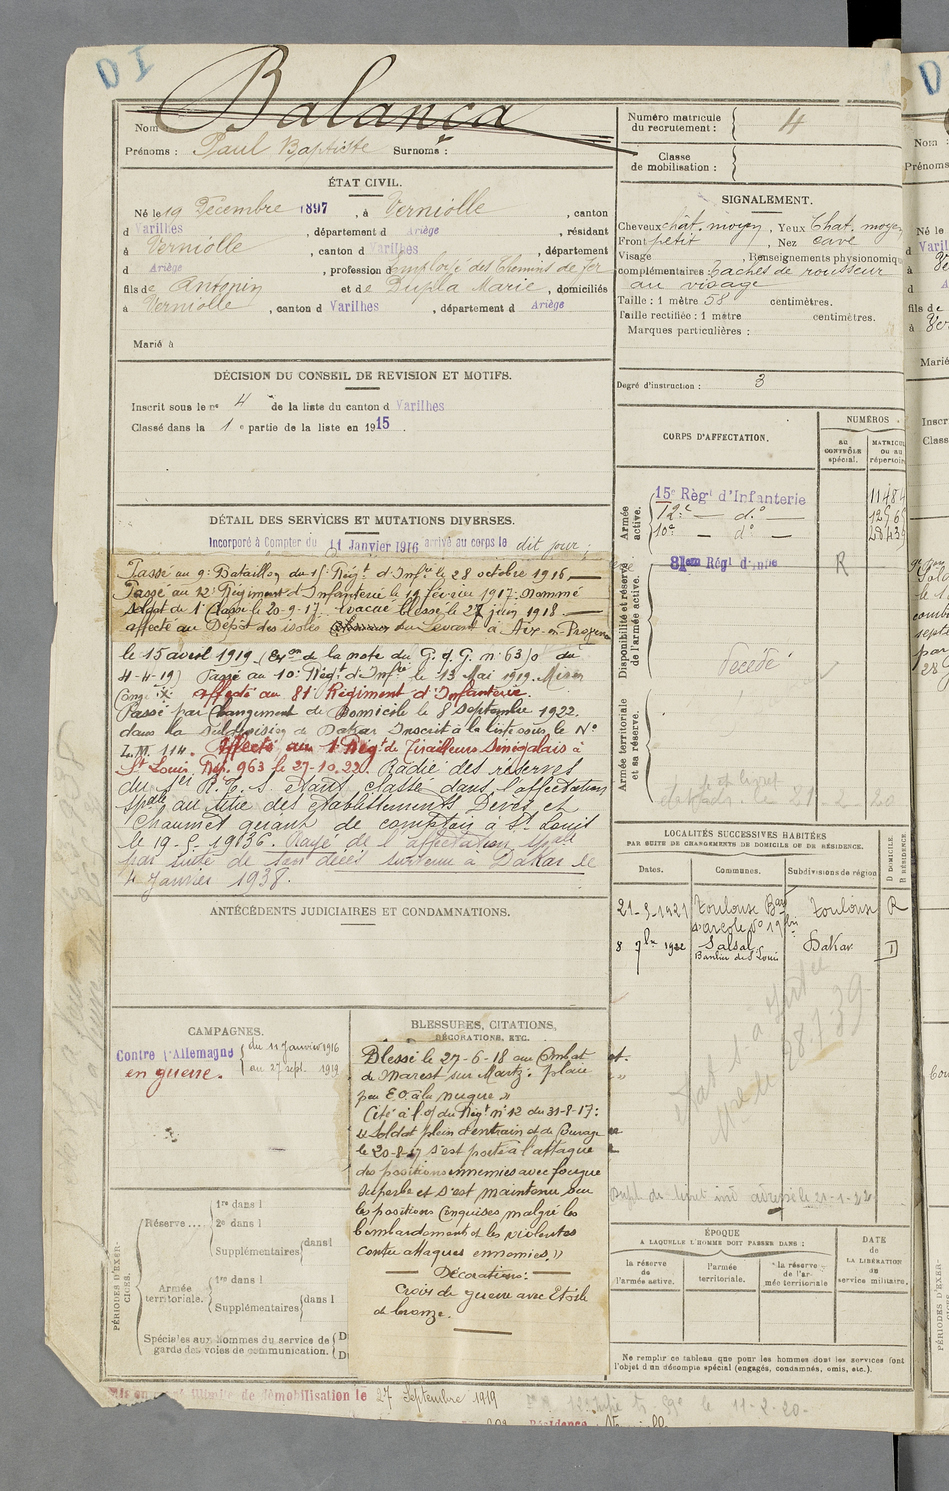 D I
Balança
Nom
Prénoms : Paul Baptiste Surnoms :
Numéro matricule du recrutement : 4
Classe de mobilisation :
ÉTAT CIVIL.
Né le 19 Décembre 1897, à Verniolle, canton
d Varilhes, département d Ariège, résidant
à Verniolle, canton d Varilhes, département
d Ariège, profession d'employé des Chemins de fer
fils de Antonin et de Dupla Marie, domiciliés
à Verniolle, canton d Varilhes, département d Ariège
Marié à
SIGNALEMENT.
Cheveux chat. moyen, Yeux Chat. moyen
Front petit, Nez cave
Visage , Renseignements physionomiq
complémentaires : Taches de rousseur
au visage
Taille : 1 mètre 58 centimètres.
Taille rectifiée : 1 mètre centimètres.
Marques particulières :
Degré d'instruction : 3
DÉCISION DU CONSEIL DE REVISION ET MOTIFS.
Inscrit sous le n° 4 de la liste du canton d Varilhes
Classé dans la 1e partie de la liste en 1915.
DÉTAIL DES SERVICES ET MUTATIONS DIVERSES.
Incorporé à Compter du 11 Janvier 1916 arrivé au corps le dit jour ;
Passé au 9e Bataillon du 15e Régt d'Infrie le 28 octobre 1916
Passé au 12e Régiment d'Infanterie le 19 février 1917. Nommé
soldat de 1e Classe le 20-9-17. évacué blessé le 27 juin 1918
affecté au Dépôt des isolés du Levant à Aix-en-Provence
le 15 avril 1919 (Exon de la note du G.Q.G. n° 63/0 du
4-4-19) Passé au 10e Régt d'Infie le 13 Mai 1919. Mis en
Congé affecté au 81e Régiment d'Infanterie.
Passé par Changement de Domicile le 8 septembre 1922
dans la Subdivision de Dakar Inscrit à la liste sous le N°
L.M. 114. Affecté au 1e Rég. de Tirailleurs Sénégalais à
St Louis, Rép. 963 le 27-10-22. Radié des réserves
du 1er R.T.S. étant classé dans l'affectation
spale au titre des établissements Devès et
Chaumet gérant de comptoir à St Louis
le 19-5-1936. Rayé de l'affectation spale
par suite de son décès survenu à Dakar le
4 Janvier 1938.
CORPS D'AFFECTATION.
NUMÉROS
AU CONTRÔLE SPÉCIAL.
MATRICUL OU AU répertoire
Armée active.
15e Régt d'Infanterie 11484
12e — do —
10e — do —
Disponibilité et réserve de l'armée active.
81eme Régt d'Infie R
Décédé
Armée territoriale et sa réserve.
21-2-20
LOCALITÉS SUCCESSIVES HABITÉES
PAR SUITE DE CHANGEMENTS DE DOMICILE OU DE RÉSIDENCE.
Dates. Communes. Subdivisions de région D DOMICILE. R RÉSIDENCE
21-5-1921 Toulouse Bard d'arcole N° 19 bis Toulouse R
8 7bre 1922 Sarsar Banlieu de St Louis Dakar D
ANTÉCÉDENTS JUDICIAIRES ET CONDAMNATIONS.
CAMPAGNES.
Contre l'Allemagne du 11 Janvier 1916
en guerre. au 27 sept. 1919
BLESSURES, CITATIONS,
DÉCORATIONS, ETC.
Blessé le 27-6-18 au Combat
de Marest sur Martz : plaie
par E.O. à la nuque »
Cité à l'O/ du Régt n° 12 du 31-8-17 :
« Soldat plein d'entrain et de Courage
le 20-8-17 s'est porté à l'attaque
des positions ennemies avec fougue
superbe et s'est maintenu sur
les positions Conquises malgré les
bombardements et les violentes
contre attaques ennemies. »
Décorations :
Croix de guerre avec Etoile
de bronze.
PÉRIODES D'EXERCICES.
Réserve ... 1re dans l
2e dans l
Supplémentaires dans l
Armée territoriale. 1re dans l
Supplémentaires dans l
Spéciales aux hommes du service de garde des voies de communication.
ÉPOQUE
A LAQUELLE L'HOMME DOIT PASSER DANS :
la réserve de l'armée active. l'armée territoriale. la réserve de l'armée territoriale
DATE de LA LIBÉRATION du service militaire.
Ne remplir ce tableau que pour les hommes dont les services font
l'objet d'un décompte spécial (engagés, condamnés, omis, etc.).
Mis en congé illimité de démobilisation le 27 Septembre 1919
le 11-2-20